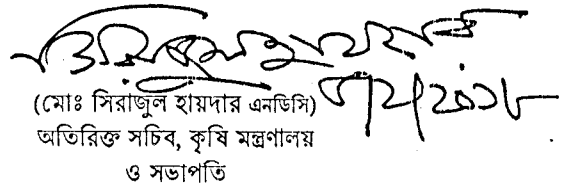 (মোঃ সিরাজুল হায়দার এনডিসি)
অতিরিক্ত সচিব, কৃষি মন্ত্রণালয়
ও সভাপতি